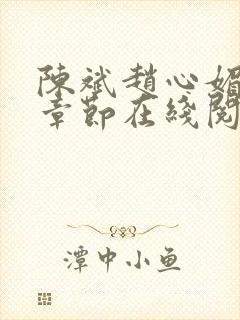 陳斌趙心媚
章節在綫閱
潭中小鱼